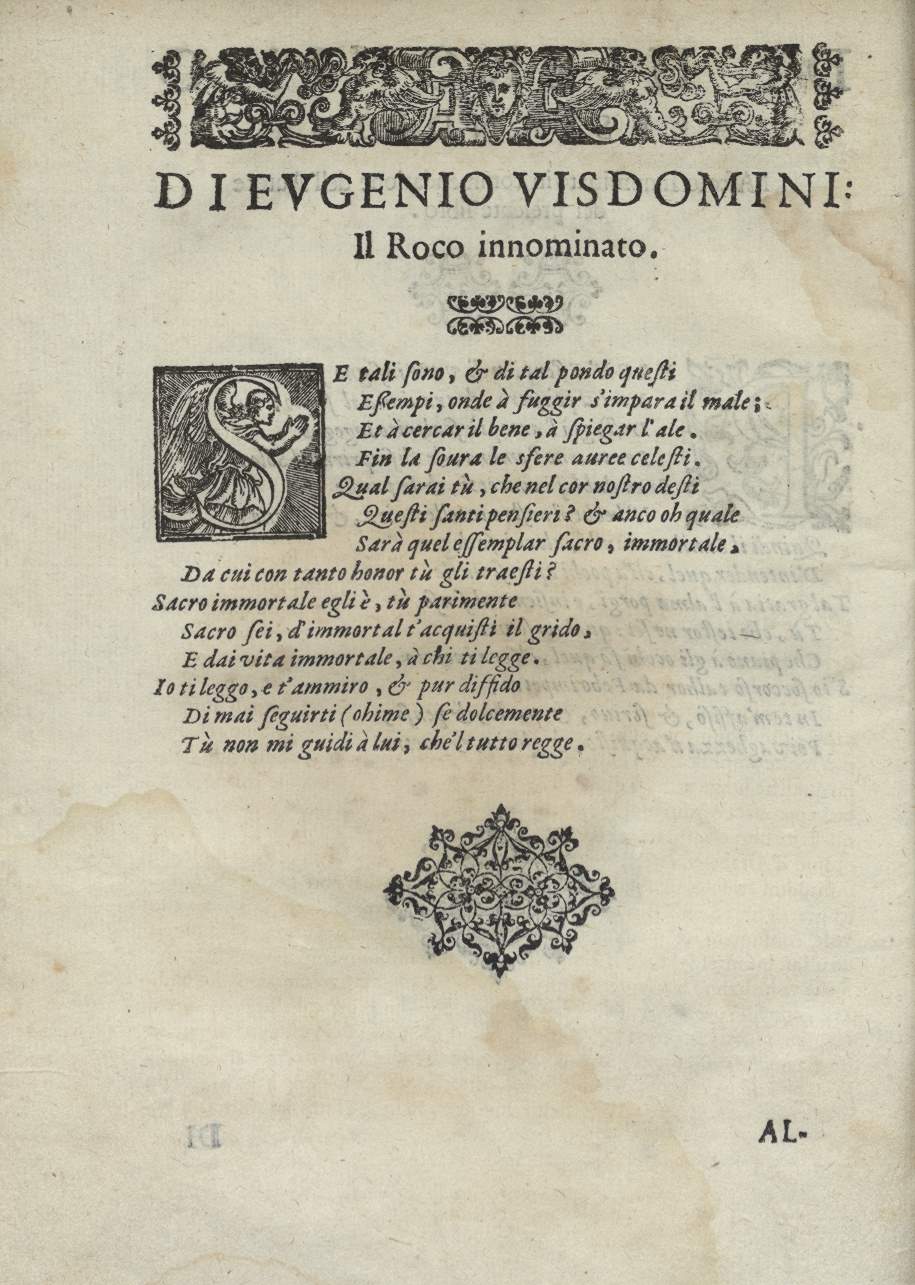 DI EVGENIO VISDOMINI:
Il Roco innominato.
SE tali sono, & di tal pondo questi
Essempi, onde à fuggir s'impara il male;
Et à cercar il bene, à spiegar l'ale.
Fin la soura le sfere auree celesti.
Qual sarai tù, che nel cor nostro desti
Questi santi pensieri? & anco oh quale
Sarà quel essemplar sacro, immortale,
Da cui con tanto honor tù gli traesti?
Sacro immortale egli è, tù parimente
Sacro sei, d'immortal t'acquisti il grido,
E dai vita immortale, à chi ti legge.
Io ti leggo, e t'ammiro, & pur diffido
Di mai seguirti (ohime) se dolcemente
Tù non mi guidi à lui, che'l tutto regge.
AL-